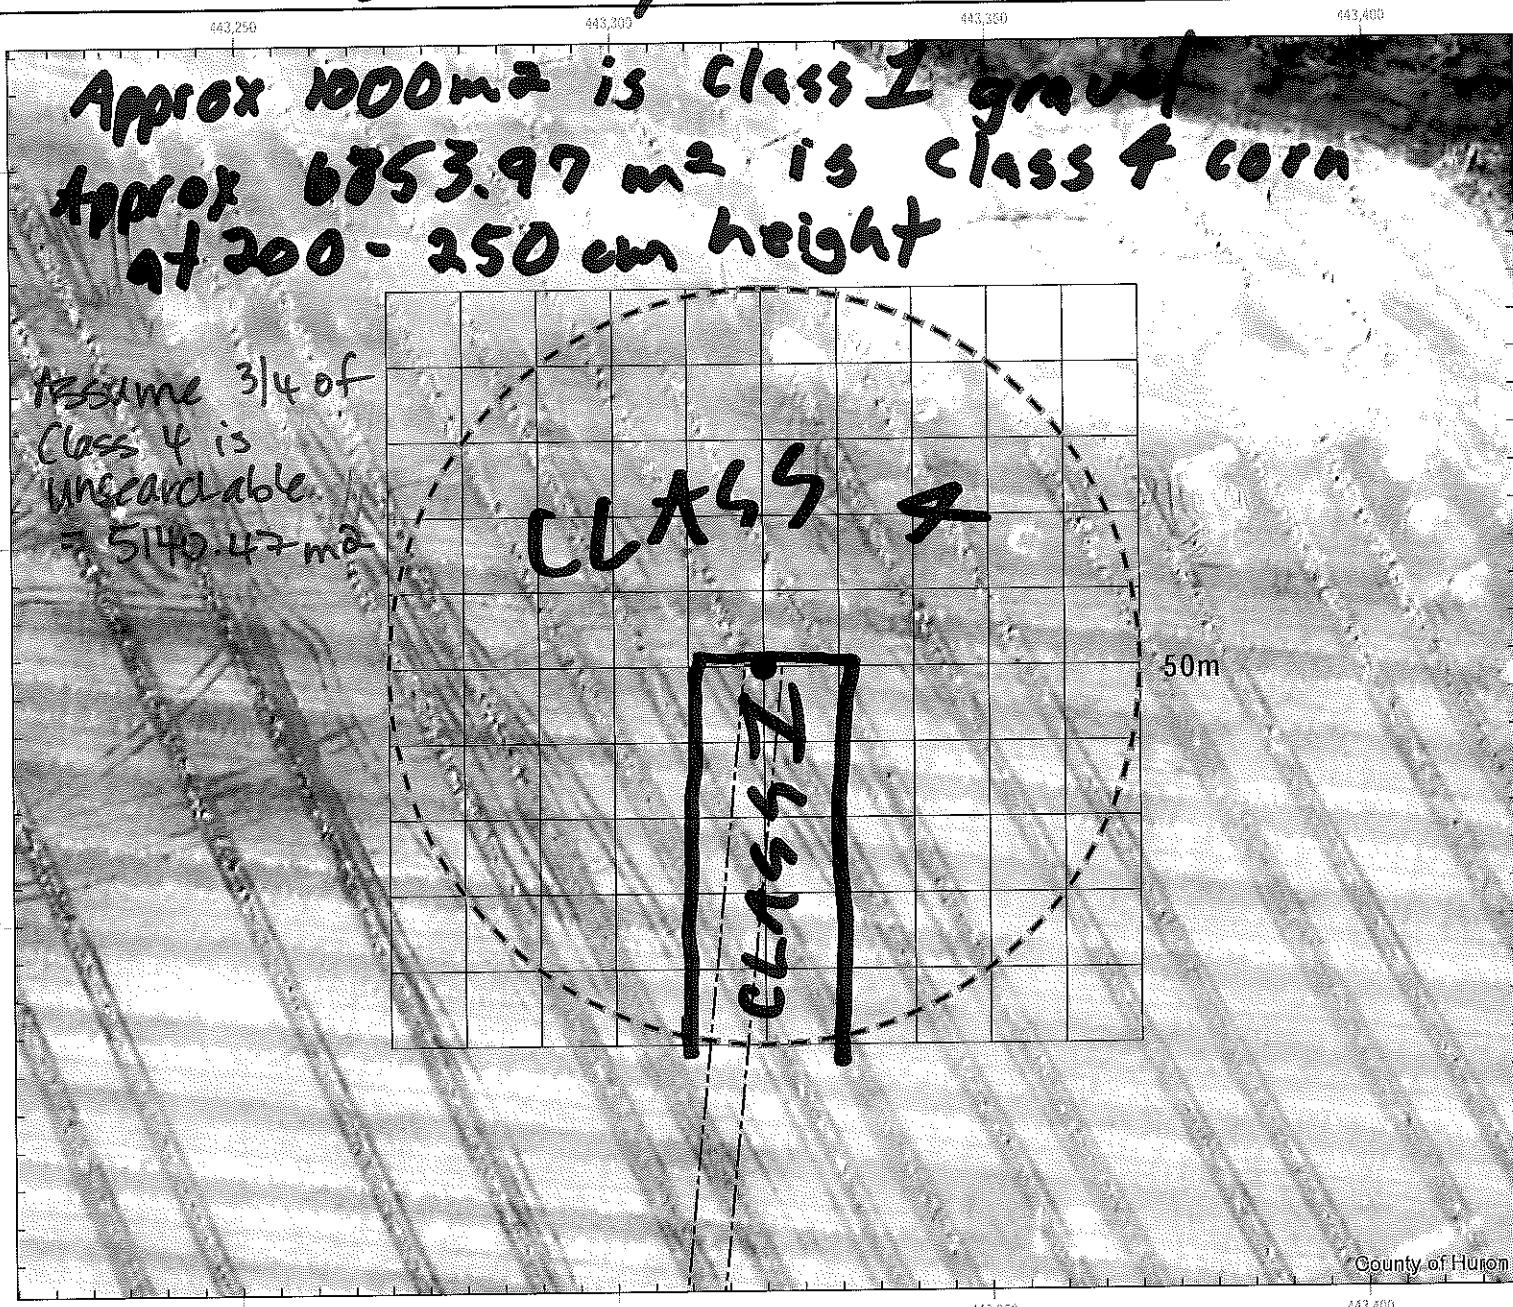 443,250 443,300 443,350 443,400
Approx 1000m2 is Class 1 gravel
Approx 6853.97 m2 is Class 4 corn
at 200 - 250 cm height
Assume 3/4 of
Class 4 is
unsearchable
= 5140.47 m2
CLASS 4
50m
CLASS 1
County of Huron
443,400